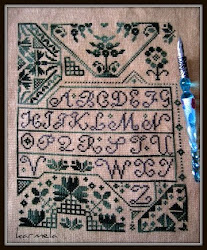 ABCDEFG
HIJKLMN
OPQRSTU
VWXY
Z